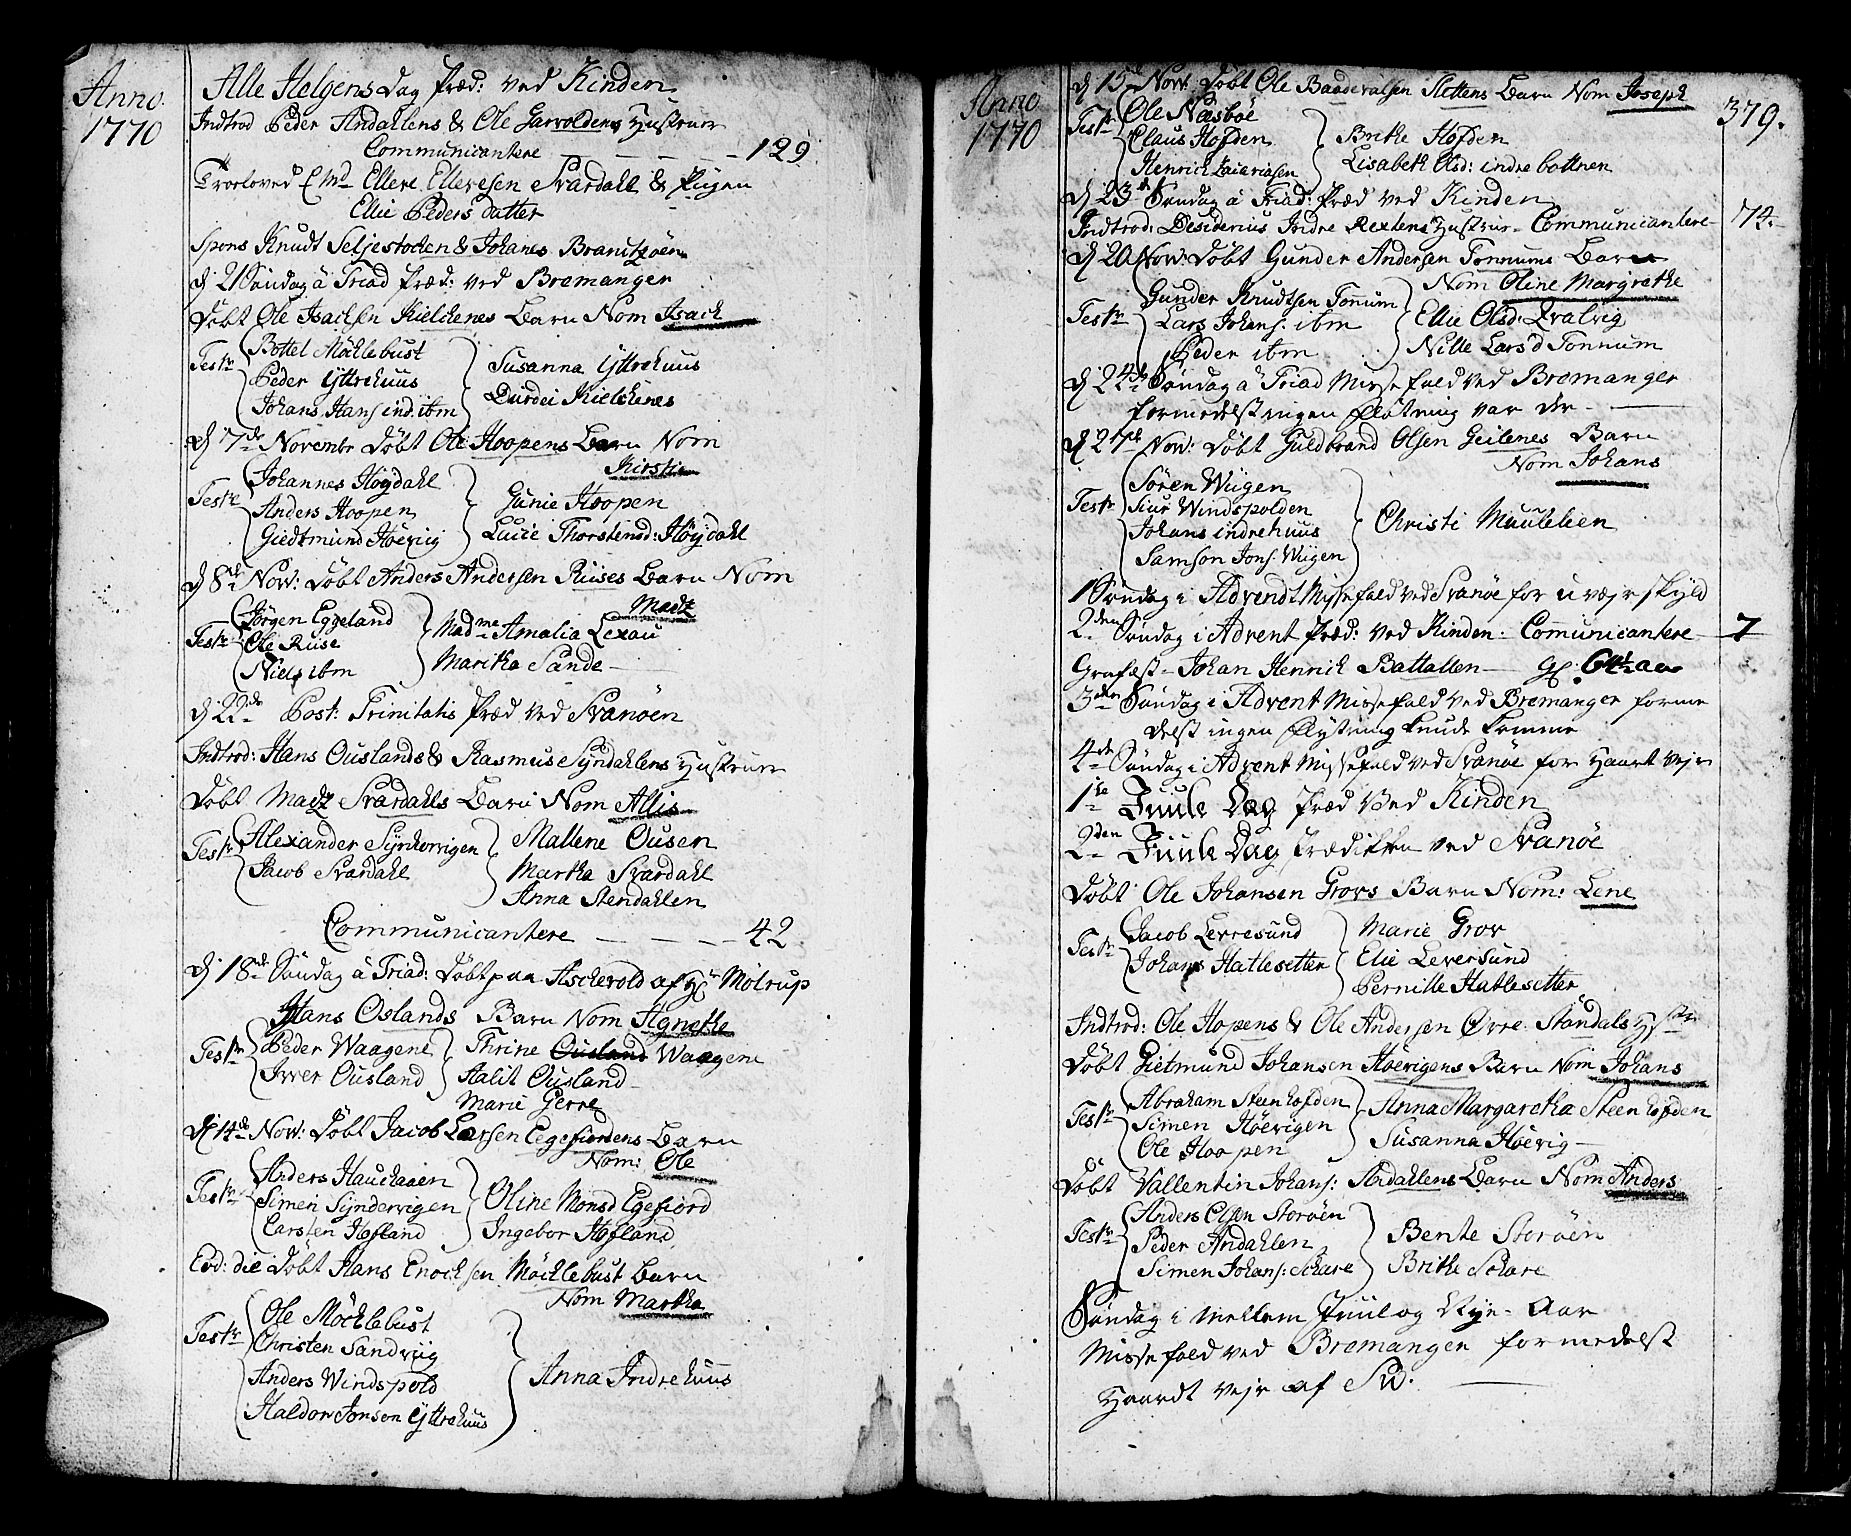 Anno
1770
Alle Helgens Dag Præd: ved Kinden
Indtrod Peder Andahlens & Ole Garvoldens Hustruer
Communicantere — — — — 129
Troeloved E: Md Ellert Ellertsen Svardahl & Pigen
Ellie Peders Datter
Spons Knudt Seljestochen & Johans Brandtzöen
D 21 Søndag à Triad Præd: ved Bremanger
Døbt Ole Isachsen Kielchenes Barn Nom Isach
Testr Bottel Möchlebust
Peder Yttrehuus
Johans Hans ind. ibm
Susanna Yttrehuus
Durdei Kielchenes
D 7de Novembr Döbt Ole Hoopens Barn Nom
Kirstie
Teste Johannes Höydahl
Anders Hoopen
Giedtmund Høevig
Gunie Hoopen
Lucie Thorstensd: Höydahl
D 8de Nov: Döbt Anders Andersen Ruses Barn Nom
Madz
Teste Jörgen Eggeland
Ole Ruse
Niels ibm
Madme Amalia Lexau
Maritha Sande
D 22de Post: Trinitatis Præd ved Svanöen
Indtrod: Hans Ouslands & Rasmus Syndahlens Hustruer
Döbt Madz Svardahls Barn Nom Allis
Testr Alexander Synhorvigen
Jacob Svardahl
Mallene Ousen
Martha Svardahl
Anna Stendahlen
Communicantere — — — — 42
D 18de Søndag à Triad: Döbt paa Aschevold af Hr Molrup
Hans Oslands Barn Nom Agnethe
Testr Peder Waagene
Ivver Ousland
Thrine Ousland Waagene
Aalit Ousland
Marie Gerre
D 14de Nov: Döbt Jacob Larsen Eegefiordens Barn
Nom: Ole
Testr Anders Hauchaaen
Simen Syndervigen
Carsten Hofland
Oline Monsd Egefiord
Ingebor Hofland
Eod: die Döbt Hans Enochsen Möchlebust Barn
Nom Martha
Testr Ole Möchlebust
Christen Sandviig
Anders Windspold
Haldor Jonsen Yttrehuus
Anna Indrehuus
Anno
1770
379.
D 15de Nov: Döbt Ole Baadervalsen Slettens Barn Nom Joseph
Testr Ole Næsböe
Claus Hofden
Henrich Zacariasen
Brithe Hofden
Lisabeth Olsd: indre bottnen
D 23de Søndag à Triad: Præd ved Kinden
Indtrod: Desiderius Indre Rextens Hustrue. Communicantere — 74.
D 20 Nov: Döbt Gunder Andersen Tonnums Barn
Nom Oline Margrethe
Testr Gunder Knudtsen Tonum
Lars Johans: ibm
Peder ibm
Ellie Olsd: Qvalvig
Nille Larsd Tonnum
D 24de Søndag à Triad Missefald ved Bremanger
formedelst ingen Fløtning var der
D 27de Nov: Döbt Guldbrand Olsen Geilenes Barn
Nom Johans
Testr Sören Wiigen
Siur Windspolden
Johans indrehuus
Samson Jons: Wiigen
Christi Muulelien
1 Søndag i Advent Missefald ved Svanöe for uveyr skyld
2den Søndag i Advent Præd: ved Kinden. Communicantere — 7
Grafæst — Johan Henrich Battallen —
3die Søndag i Advent Missefald ved Bremanger forme
delst ingen Flytning kunde komme
4de Søndag i Advent Missefald ved Svanöe for Haart Vejr
1te Juule Dag Præd Ved Kinden
2den Juule Dag Prædiken ved Svanöe
Döbt Ole Johansen Grovs Barn Nom: Lene
Testr Jacob Levresund
Johans Hatlesetter
Marie Grov
Elie Leversund
Pernille Hatlesetter
Indtrod: Ole Hopens & Ole Andersen Øvre Standals Hustr
Döbt Gietmund Johansen Høevigens Barn Nom Johans
Testr Abraham Steenhofden
Simen Höevigen
Ole Hoopen
Anna Margaretha Steenhofden
Susanna Höevig
Döbt Vallentin Johans: Andahlens Barn Nom Anders
Testr Anders Elsen Storöen
Peder Andahlen
Simen Johans: Schare
Bente Storöen
Brithe Schare
Søndag i mellem Juul og Nye-Aar
Missefald ved Bremangen formedelst
Haardt Vejr af Sud.